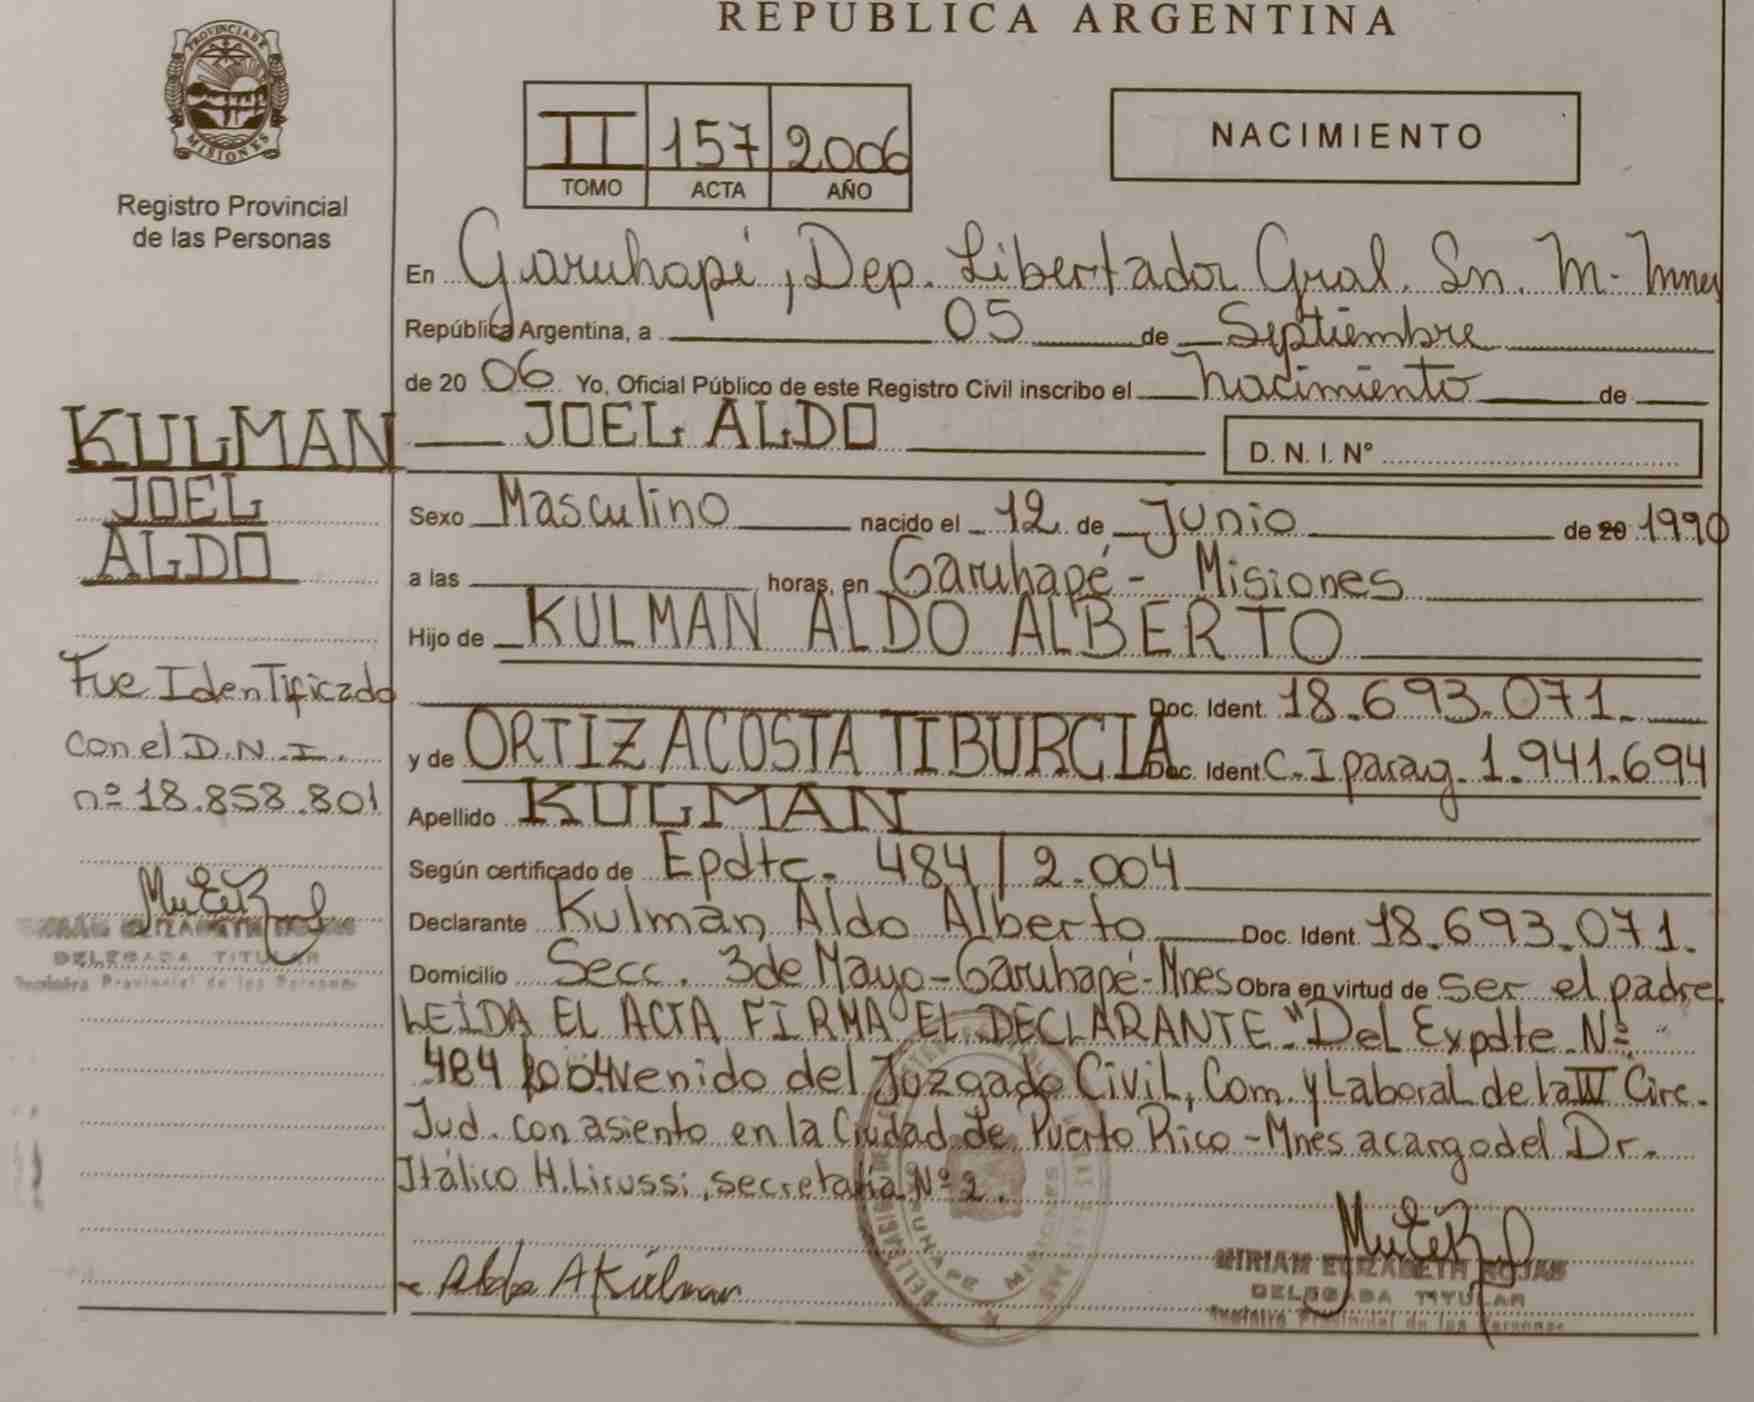 REPUBLICA ARGENTINA
PROVINCIA DE
MISIONES
Registro Provincial
de las Personas
II 157 2006
TOMO ACTA AÑO
NACIMIENTO
En Garuhapé, Dep. Libertador Gral. Sn. M- Mnes
República Argentina, a 05 de Septiembre
de 20 06 Yo, Oficial Público de este Registro Civil inscribo el nacimiento de
JOEL ALDO
D. N. I. Nº
Sexo Masculino nacido el 12 de Junio de 20 1990
a las horas, en Garuhapé - Misiones
Hijo de KULMAN ALDO ALBERTO
Doc. Ident. 18.693.071.
y de ORTIZ ACOSTA TIBURCIA Doc. Ident C. I parag. 1.941.694
Apellido KULMAN
Según certificado de Epdte. 484 / 2.004
Declarante Kulman Aldo Alberto Doc. Ident. 18.693.071.
Domicilio Secc. 3 de Mayo - Garuhapé - Mnes Obra en virtud de ser el padre.
LEIDA EL ACTA FIRMA EL DECLARANTE "Del Expdte. Nº
484 venido del Juzgado Civil, Com. y Laboral de la Circ.
Jud. con asiento en la Ciudad de Puerto Rico - Mnes a cargo del Dr.
Itálico H. Lirussi, secretaria Nº 2.
Aldo A Kulman
MIRIAM ELIZABETH ROJAS
DELEGADA TITULAR
Registro Provincial de las Personas
KULMAN
JOEL
ALDO
Fue Identificado
con el D.N.I.
nº 18.858.801
MIRIAM ELIZABETH ROJAS
DELEGADA TITULAR
Registro Provincial de las Personas
GARUHAPE MISIONES